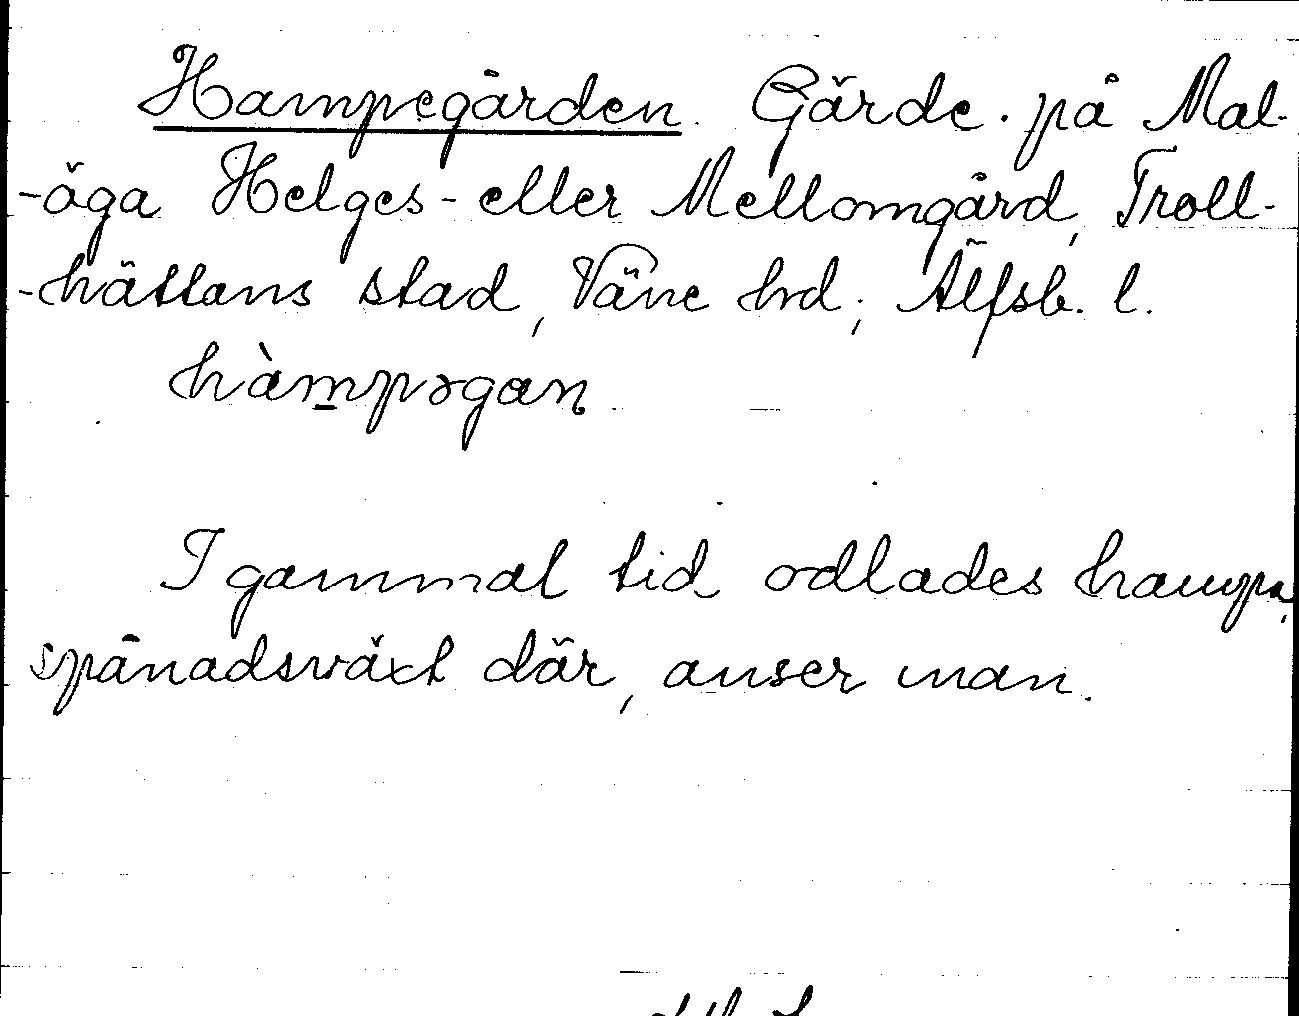 Hampegården. Gärde. på Mal-
-öga Helges- eller Mellomgård, Troll-
-hättans stad, Väne hd; Älfsb. l.
hàmpəgan
I gammal tid odlades hampa,
spånadsväxt där, anser man.